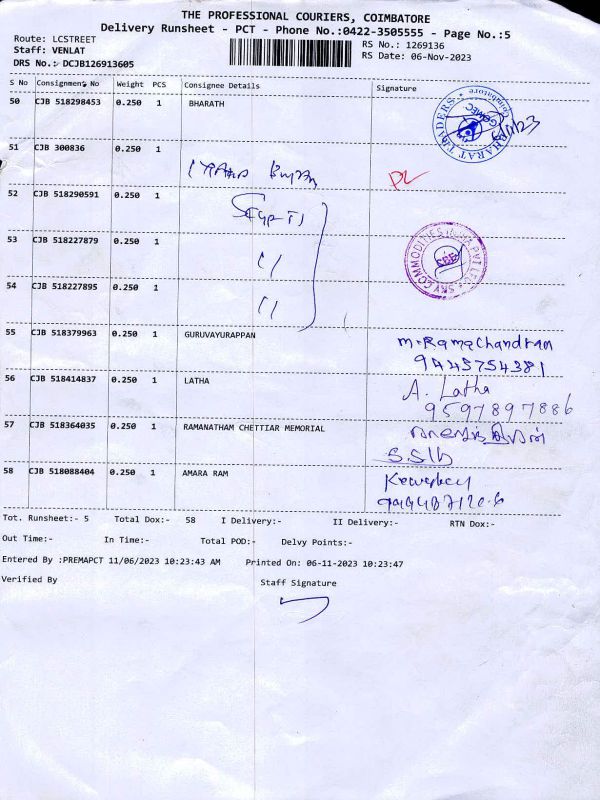 THE PROFESSIONAL COURIERS, COIMBATORE
Delivery Runsheet - PCT - Phone No.:0422-3505555 - Page No.:5
Route: LCSTREET
Staff: VENLAT
DRS No.: DCJB126913605
RS No.: 1269136
RS Date: 06-Nov-2023
S No Consignment No Weight PCS Consignee Details Signature
50 CJB 518298453 0.250 1 BHARATH
BHARAT TRADERS * Coimbatore *
51 CJB 300836 0.250 1
52 CJB 518290591 0.250 1
53 CJB 518227879 0.250 1
SKY COMMODITIES INDIA PVT LTD
54 CJB 518227895 0.250 1
55 CJB 518379963 0.250 1 GURUVAYURAPPAN M.Ramachandran
9445754381
56 CJB 518414837 0.250 1 LATHA A. Latha
9597897886
57 CJB 518364035 0.250 1 RAMANATHAM CHETTIAR MEMORIAL
58 CJB 518088404 0.250 1 AMARA RAM
Tot. Runsheet:- 5 Total Dox:- 58 I Delivery:- II Delivery:- RTN Dox:-
Out Time:- In Time:- Total POD:- Delvy Points:-
Entered By :PREMAPCT 11/06/2023 10:23:43 AM Printed On: 06-11-2023 10:23:47
Verified By Staff Signature